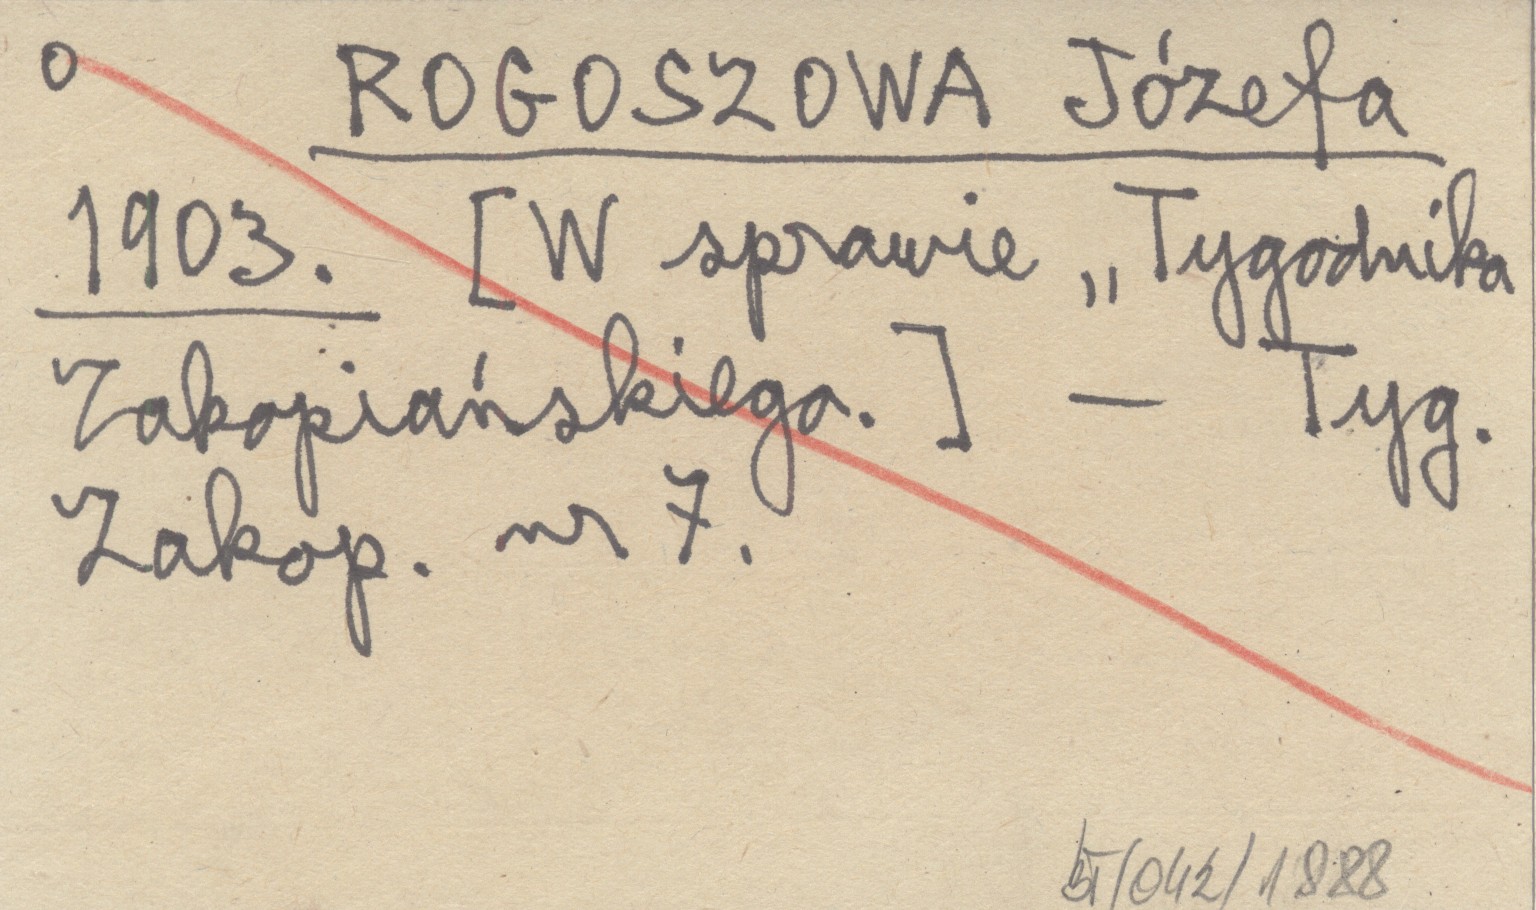 o ROGOSZOWA Józefa
1903. [W sprawie „Tygodnika
Zakopiańskiego.] — Tyg.
Zakop. nr 7.
/042/1888